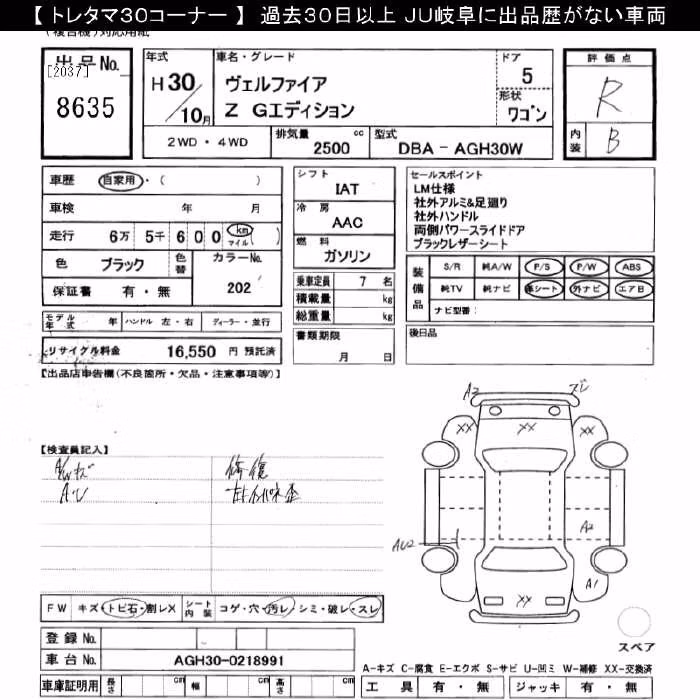 【 トレタマ30コーナー 】 過去30日以上 JU岐阜に出品歴がない車両
(複合機)対応用紙
出品No.
[2037]
8635
年式
H 30/10月
車名・グレード
ヴェルファイア
Z Gエディション
ドア
5
形状
ワゴン
評価点
R
内装
B
2WD・4WD
排気量
2500 cc
型式
DBA - AGH30W
車歴 自家用・( )
車検 年 月
走行 6万 5千 6 0 0 km マイル ( )
色 ブラック 色替 カラーNo. 202
保証書 有・無
モデル年式 年 ハンドル 左・右 ディーラー・並行
リサイクル料金 16,550 円 預託済
シフト IAT
冷房 AAC
燃料 ガソリン
乗車定員 7 名
積載量 kg
総重量 kg
書類期限
月 日
セールスポイント
LM仕様
社外アルミ&足廻り
社外ハンドル
両側パワースライドドア
ブラックレザーシート
装備品
S/R 純A/W P/S P/W ABS
純TV 純ナビ 革シート 外ナビ エアB
ナビ型番:
後日品
【出品店申告欄(不良箇所・欠品・注意事項等)】
【検査員記入】
修復
A2
ズレ
XX XX XX
AU2
A2
A1
XX
スペア
FW キズ・トビ石・割レX シート内装 コゲ・穴・汚レ シミ・破レ・スレ
登録 No.
車台 No. AGH30-0218991
車庫証明用 長さ cm 幅 cm 高さ cm
A-キズ C-腐食 E-エクボ S-サビ U-凹ミ W-補修 XX-交換済
工具 有・無 ジャッキ 有・無